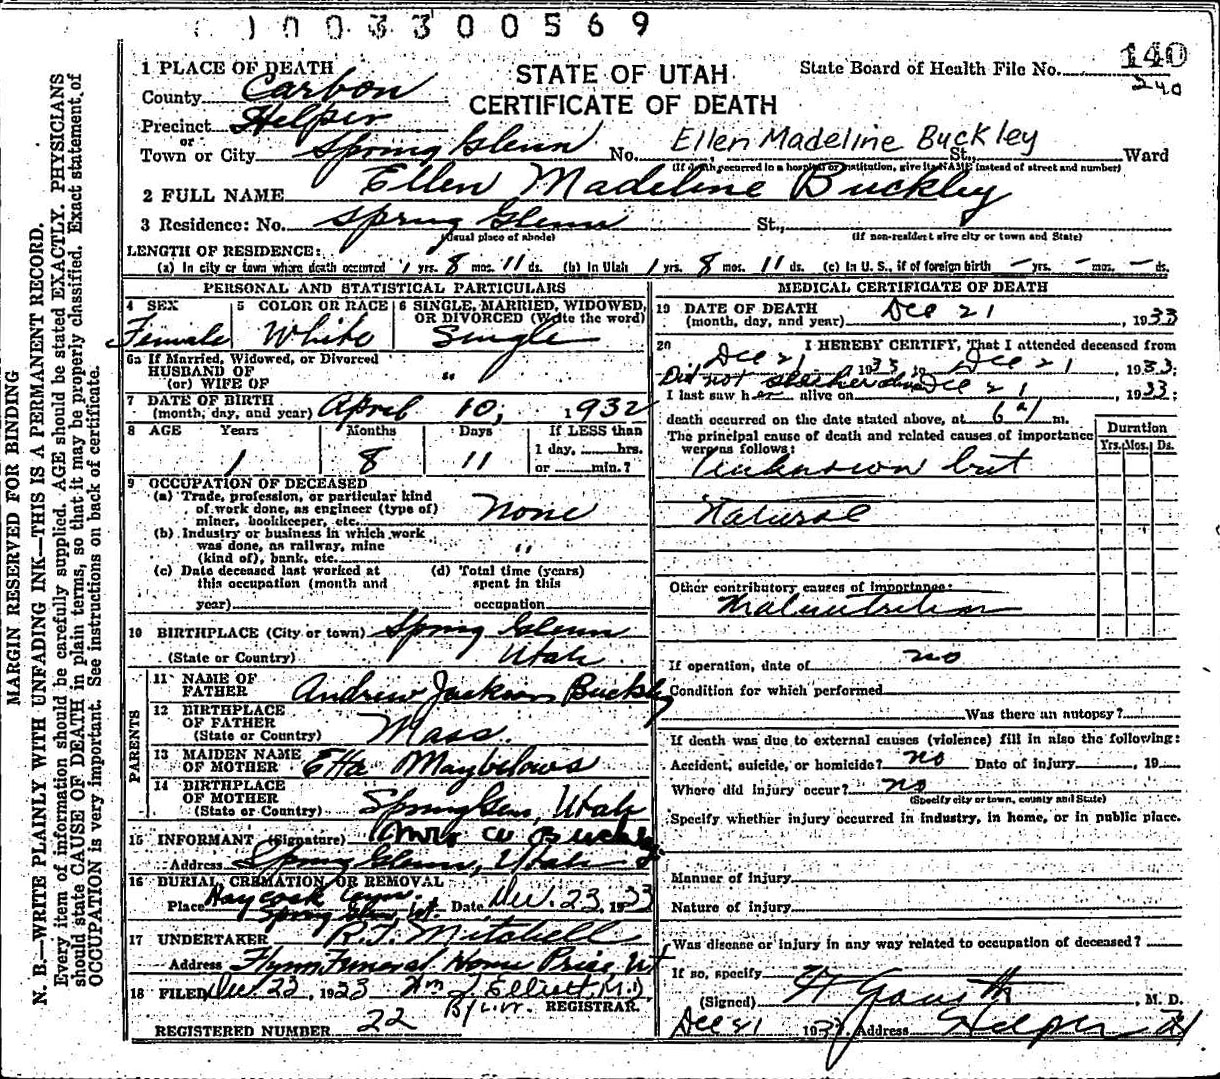 1003300569
140
240
1 PLACE OF DEATH
STATE OF UTAH
CERTIFICATE OF DEATH
State Board of Health File No.
County Carbon
Precinct Helper
or
Town or City Spring Glenn No. Ellen Madeline Buckley St., Ward
(If death occurred in a hospital or institution, give its NAME instead of street and number)
2 FULL NAME Ellen Madeline Buckley
3 Residence: No. Spring Glenn St.,
(Usual place of abode) (If non-resident give city or town and State)
LENGTH OF RESIDENCE:
(a) In city or town where death occurred 1 yrs. 8 mos. 11 ds. (b) In Utah 1 yrs. 8 mos. 11 ds. (c) In U. S., if of foreign birth - yrs. - mos. - ds.
PERSONAL AND STATISTICAL PARTICULARS
4 SEX Female
5 COLOR OR RACE White
6 SINGLE, MARRIED, WIDOWED, OR DIVORCED (Write the word) Single
6a If Married, Widowed, or Divorced
HUSBAND OF
(or) WIFE OF "
7 DATE OF BIRTH
(month, day, and year) April 10, 1932
8 AGE Years Months Days If LESS than
1 8 11 1 day, hrs.
or min.?
9 OCCUPATION OF DECEASED
(a) Trade, profession, or particular kind
of work done, as engineer (type of)
miner, bookkeeper, etc. None
(b) Industry or business in which work
was done, as railway, mine
(kind of), bank, etc. "
(c) Date deceased last worked at
this occupation (month and
year)
(d) Total time (years)
spent in this
occupation
10 BIRTHPLACE (City or town) Spring Glenn
(State or Country) Utah
PARENTS
11 NAME OF
FATHER Andrew Jackson Buckley
12 BIRTHPLACE
OF FATHER
(State or Country) Mass.
13 MAIDEN NAME
OF MOTHER Etta
14 BIRTHPLACE
OF MOTHER
(State or Country) Spring Glenn, Utah
15 INFORMANT (Signature) Mrs Buckley
Address Spring Glenn, Utah
16 BURIAL, CREMATION OR REMOVAL
Place Haycock Cem. Spring Glen, Ut. Date Dec. 23, 1933
17 UNDERTAKER R.F. Mitchell
Address Flynn Funeral Home Price, Ut
18 FILED Dec. 23, 1933 Wm J Elliott, M.D.
REGISTRAR.
REGISTERED NUMBER 22
MEDICAL CERTIFICATE OF DEATH
19 DATE OF DEATH
(month, day, and year) Dec 21, 1933
20 I HEREBY CERTIFY, That I attended deceased from
Dec 21 1933 to Dec 21, 1933:
Did not see her alive
I last saw her alive on Dec 21, 1933:
death occurred on the date stated above, at 6 a m.
The principal cause of death and related causes of importance
were as follows:
Duration
Yrs. Mos. Ds.
Unknown but
Natural
Other contributory causes of importance:
Malnutrition
If operation, date of no
Condition for which performed
Was there an autopsy?
If death was due to external causes (violence) fill in also the following:
Accident, suicide, or homicide? no Date of injury, 19
Where did injury occur? no
(Specify city or town, county and State)
Specify whether injury occurred in industry, in home, or in public place.
Manner of injury
Nature of injury
Was disease or injury in any way related to occupation of deceased?
If so, specify
(Signed) , M. D.
Dec 21 193 Address Helper
MARGIN RESERVED FOR BINDING
N. B.—WRITE PLAINLY WITH UNFADING INK—THIS IS A PERMANENT RECORD.
Every item of information should be carefully supplied. AGE should be stated EXACTLY. PHYSICIANS
should state CAUSE OF DEATH in plain terms, so that it may be properly classified. Exact statement of
OCCUPATION is very important. See instructions on back of certificate.